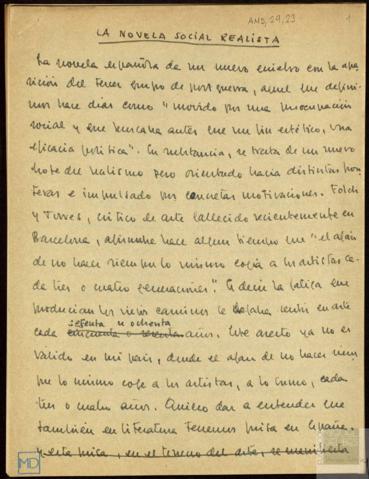 AMD, 29, 23
1
LA NOVELA SOCIAL REALISTA
La novela española da un nuevo cambio con la apa-
rición del tercer grupo de postguerra, aquel que defini-
mos hace días como "movido por una preocupación
social y que buscaba antes que un fin estético, una
eficacia política". En substancia, se trata de un nuevo
brote del realismo pero orientado hacia distintas fron-
teras e impulsado por concretas motivaciones. Folch
y Torres, crítico de arte fallecido recientemente en
Barcelona, afirmaba hace algún tiempo que "el afán
de no hacer siempre lo mismo cogía a los artistas ca-
da tres o cuatro generaciones". Es decir la fatiga que
producían los viejos caminos se dejaba sentir en arte
setenta u ochenta
cada cincuenta o sesenta años. Este aserto ya no es
válido en mi país, donde el afán de no hacer siem-
pre lo mismo coge a los artistas, a lo sumo, cada
tres o cuatro años. Quiero dar a entender que
también en literatura tenemos prisa en España.
y esta prisa, en el terreno del arte, se manifiesta
MD